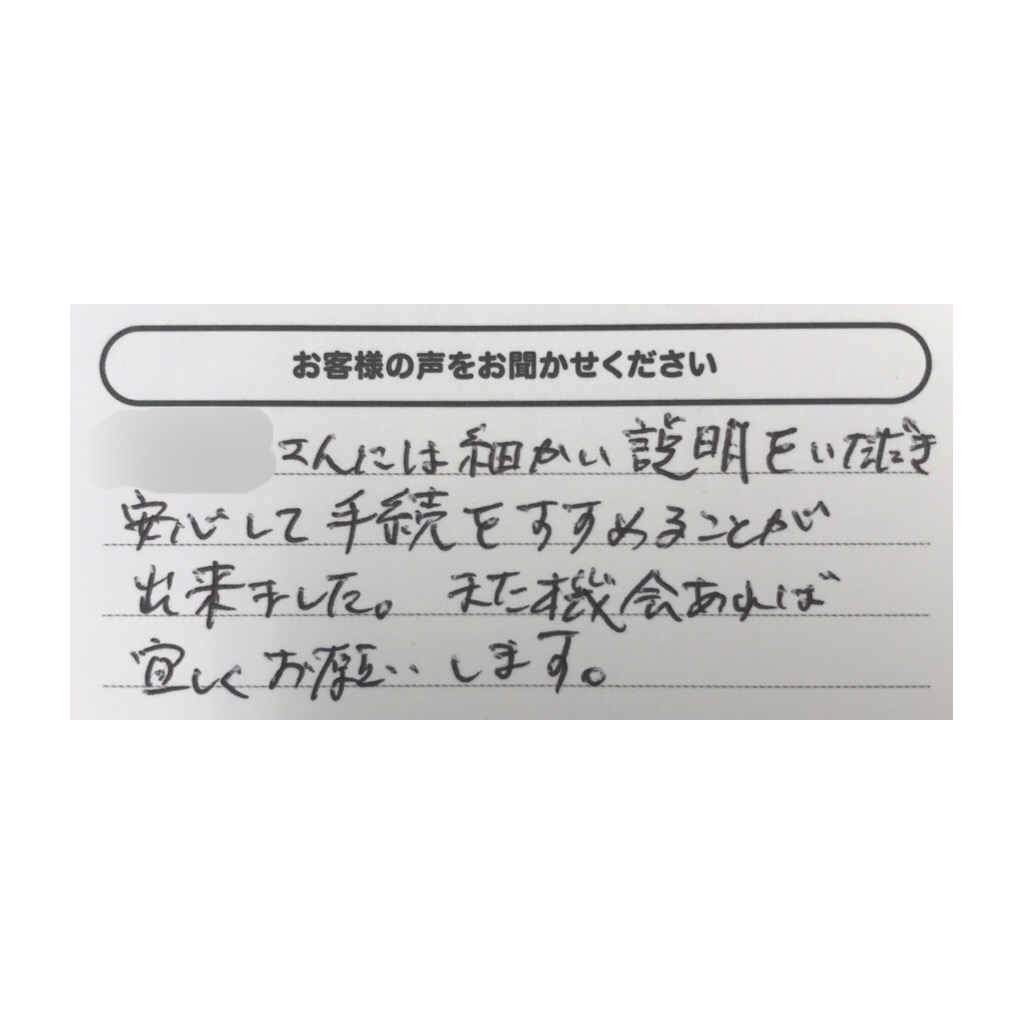 お客様の声をお聞かせください
さんには細かい説明をいただき
安心して手続をすすめることが
出来ました。また機会あれば
宜しくお願いします。